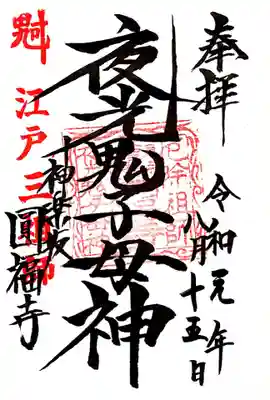 奉拝
令和元年
八月十五日
夜光鬼子母神
神楽坂
圓福寺
江戸三